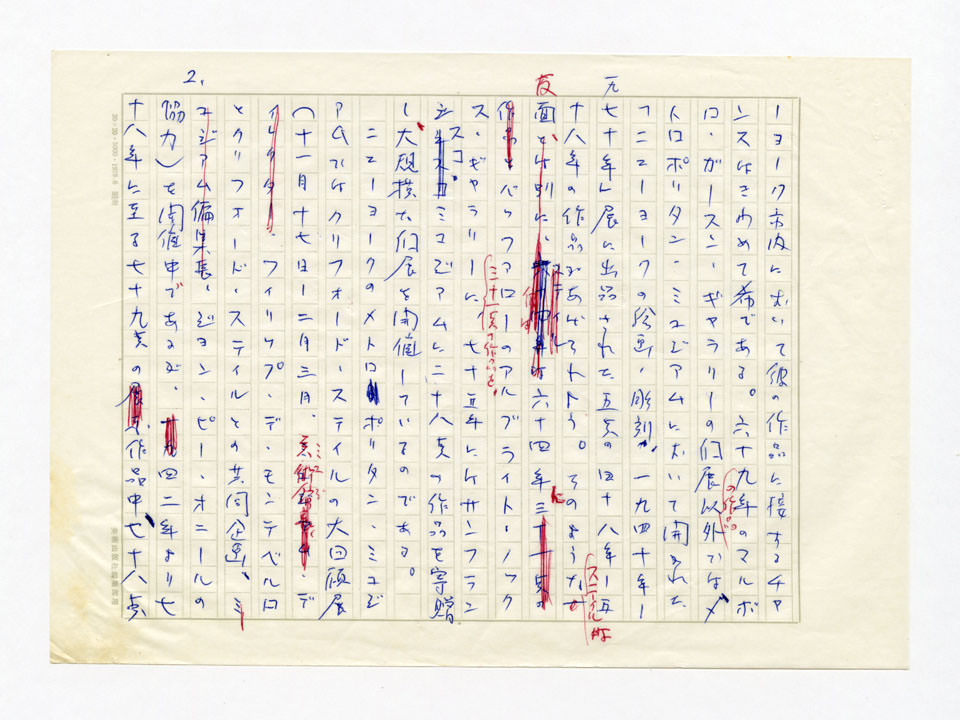 2.
ーヨーク市内において彼の作品に接するチャ
ンスはきわめて希である。六十九年のマルボ
ロ・ガースン・ギャラリーの個展以外ではメ
の作品
トロポリタン・ミュゼアムにおいて開かれた
「ニューヨークの絵画・彫刻、一九四十年ー
九七十年」展に出品された五点の四十八年ー五
十八年の作品があげられよう。そのような
スティルは
反面
面とは別に、六十四年に三十一点の
三十一点の作品を、
作品とバッファローのアルブライト・ノック
ス・ギャラリーに、七十五年にはサンフラン
シスコ・ミュゼアムに二十八点の作品を寄贈
し大規模な個展を開催しているのである。
ニューヨークのメトロポリタン・ミュゼ
アムではクリフォード・スティルの大回顧展
(十一月十七日ー二月三日、
ミュゼ
デ
ィレクター、フィリップ・デ・モンテベルロ
とクリフォード・スティルとの共同企画、ミ
ュジアム編集長、ジョン・ピー・オニールの
協力)を開催中であるが、四二年より七
十八年に至る七十九点の展示作品中、七十八点
20×20=1000